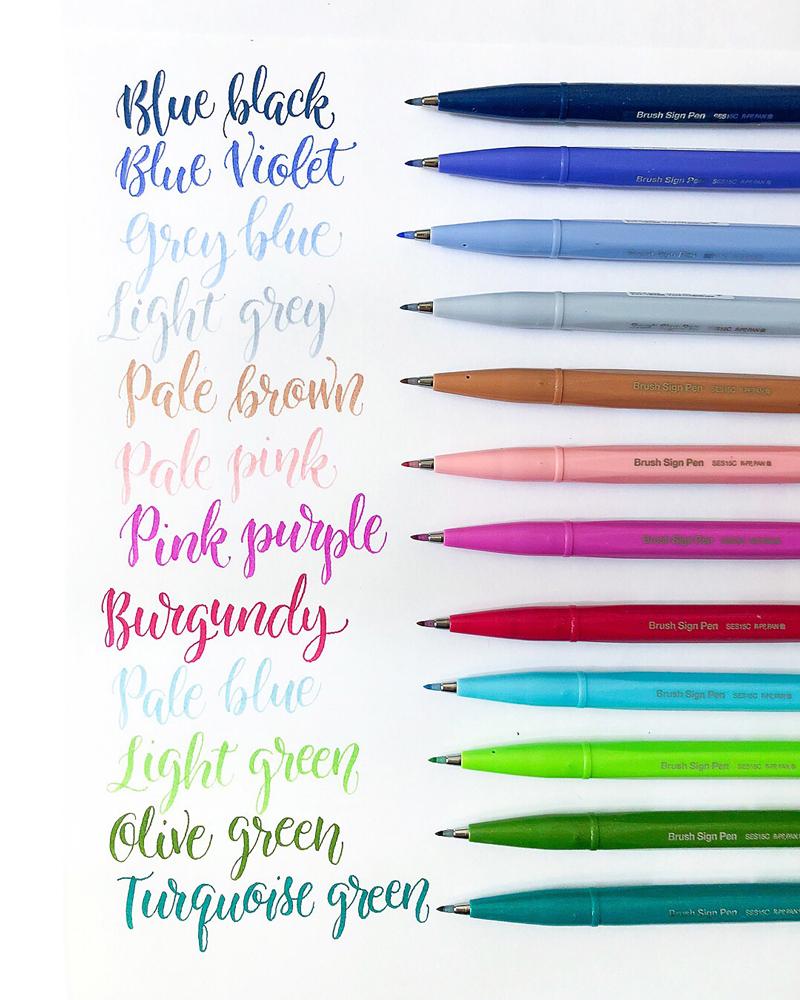 Blue black
Brush Sign Pen SES15C
Blue Violet
Brush Sign Pen SES15C
Grey blue
Brush Sign Pen
Light grey
Brush Sign Pen SES15C
Pale brown
Brush Sign Pen SES15C
Pale pink
Brush Sign Pen SES15C
Pink purple
Brush Sign Pen
Burgundy
Brush Sign Pen SES15C
Pale blue
Brush Sign Pen SES15C
Light green
Brush Sign Pen SES15C
Olive green
Brush Sign Pen SES15C
Turquoise green
Brush Sign Pen SES15C